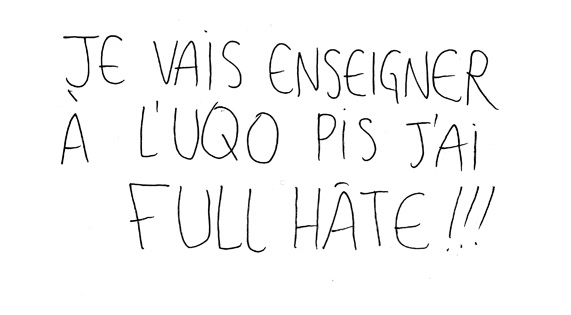 JE VAIS ENSEIGNER
À L'UQO PIS J'AI
FULL HÂTE!!!